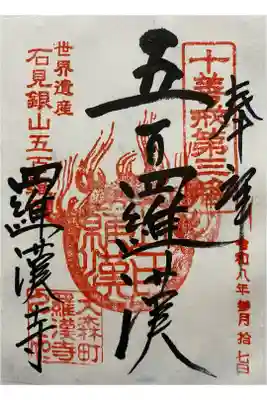 奉拝
十善戒第三
令和八年
月拾七日
五百羅漢
世界遺産
石見銀山五百
羅漢寺
大森町
羅漢寺